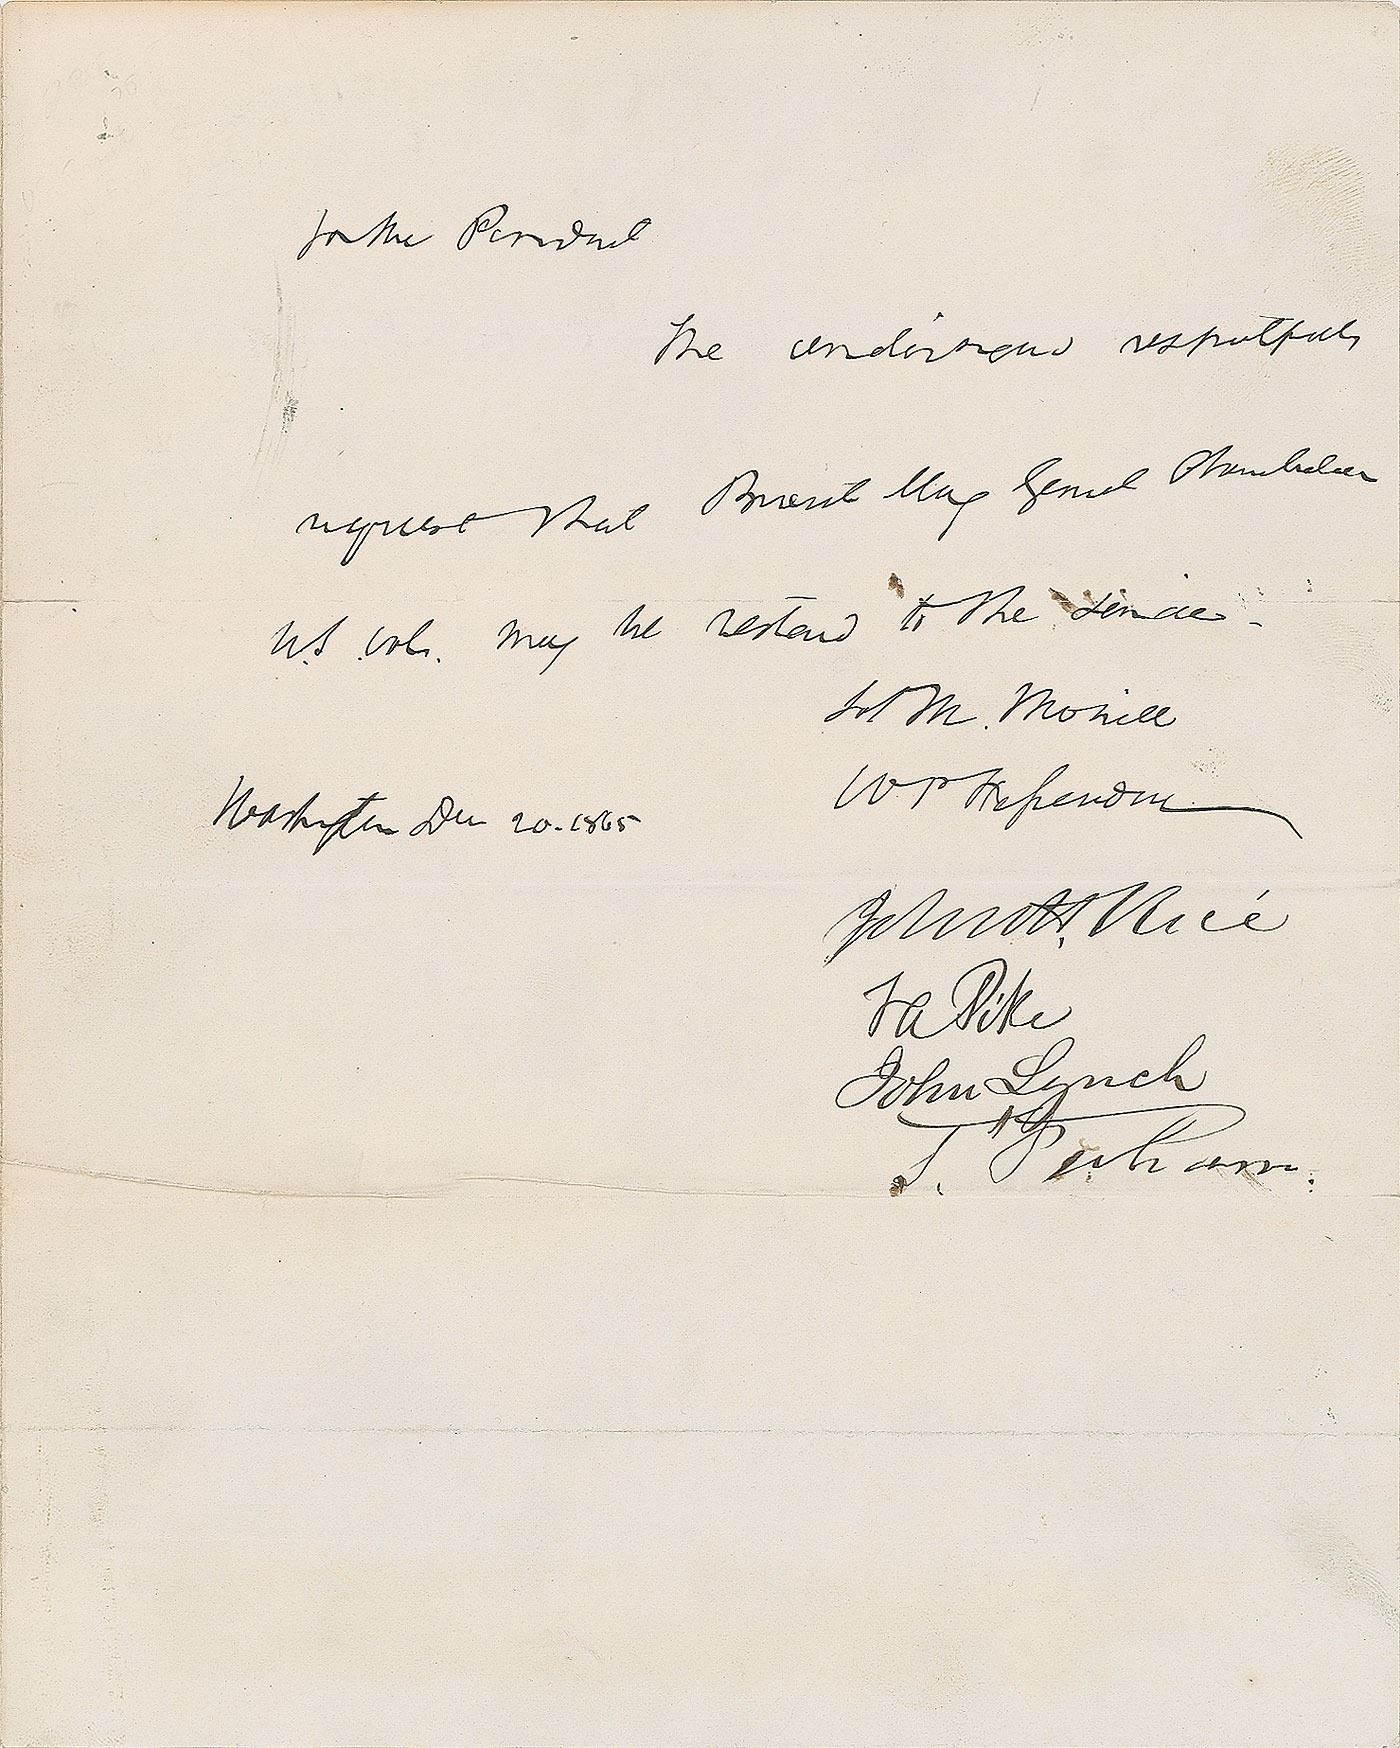 To the President
The undersigned respectfully
request that Brevet Maj Genral Chamberlain
U.S. Vols. may be restored to the service -
Lot M. Morrill
W P Fessenden
Washington Dec 20. 1865
John H. Rice
F A Pike
John Lynch
S. Perham.